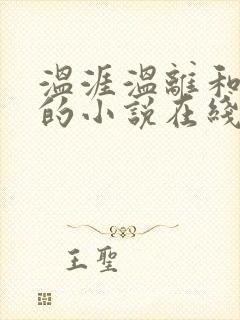 温涯温離和
的小説在綫
王聖